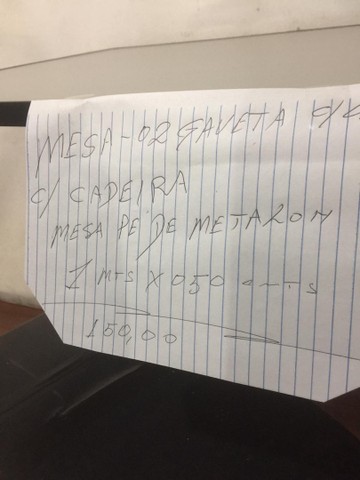 MESA-02 GAVETA
C/ CADEIRA
MESA PE DE METALON
1 MTS X 050 cmts
150,00